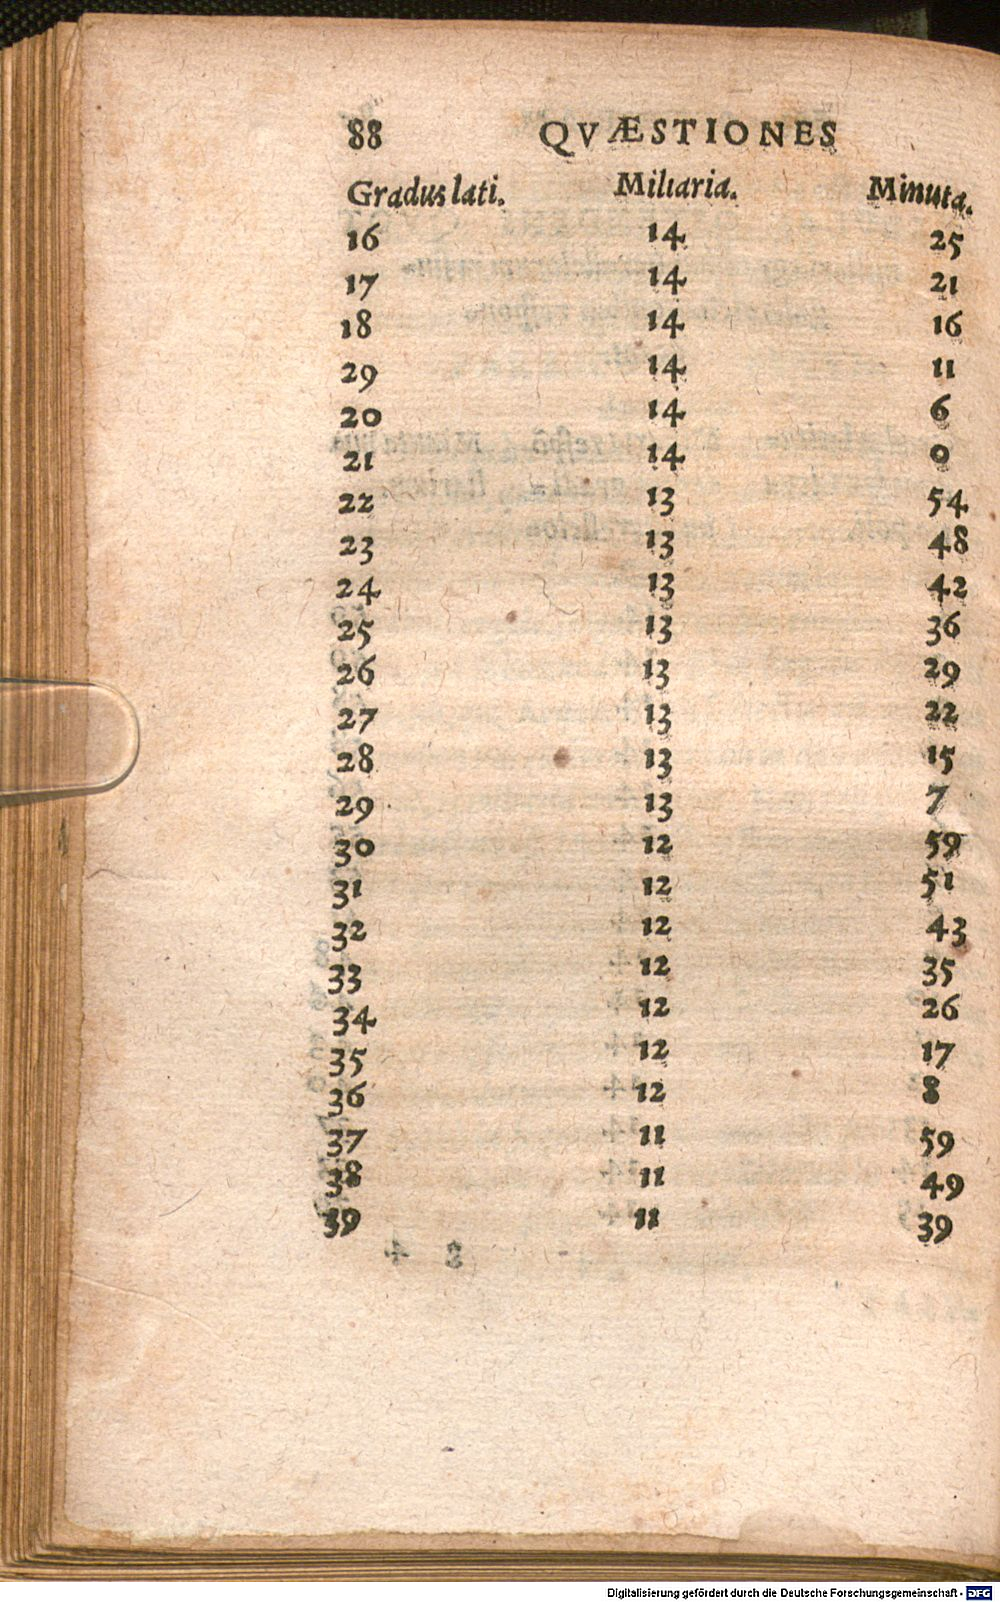 88 QVÆSTIONES
Gradus lati. Miliaria. Minuta.
16 14 25
17 14 21
18 14 16
29 14 11
20 14 6
21 14 0
22 13 54
23 13 48
24 13 42
25 13 36
26 13 29
27 13 22
28 13 15
29 13 7
30 12 59
31 12 51
32 12 43
33 12 35
34 12 26
35 12 17
36 12 8
37 11 59
38 11 49
39 11 39
Digitalisierung gefördert durch die Deutsche Forschungsgemeinschaft - DFG